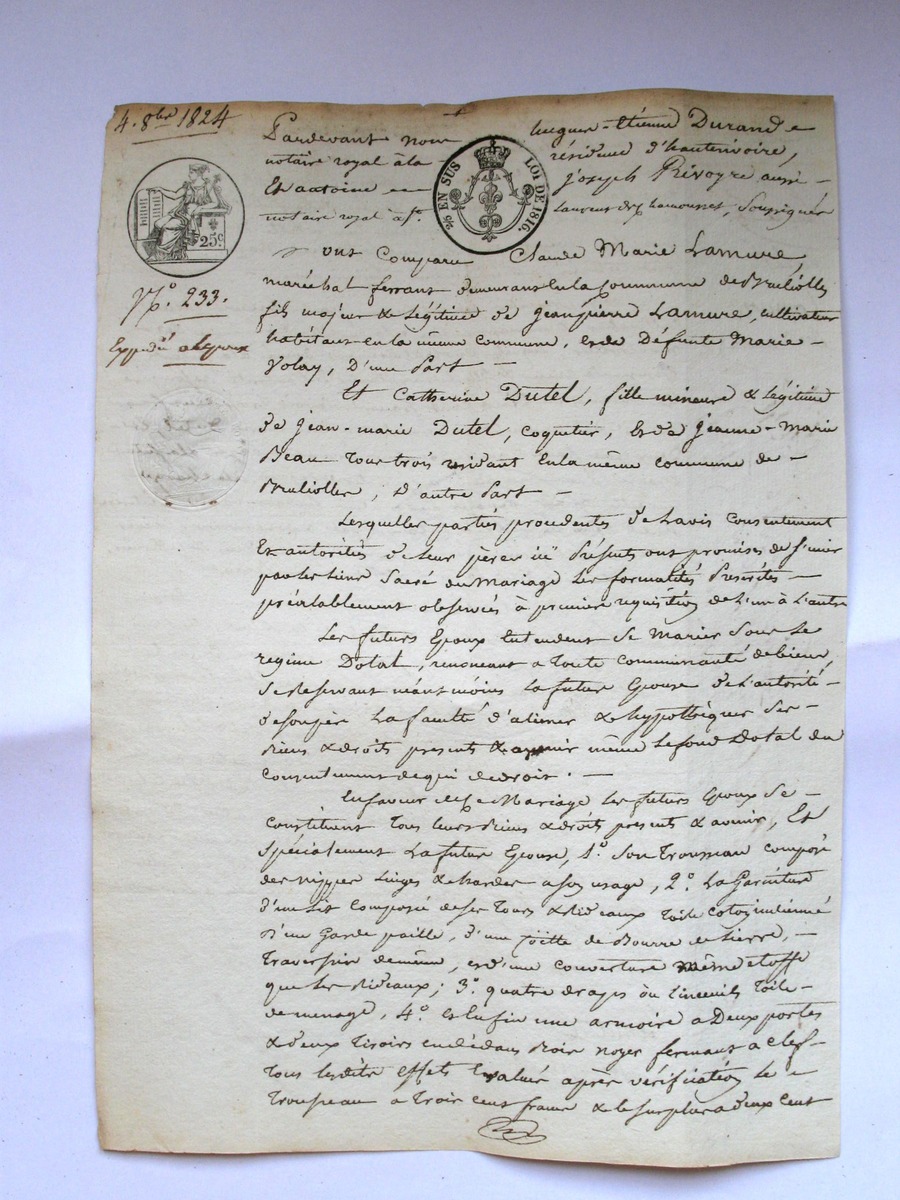 4. 8bre 1824
Pardevant nous hugues-Etienne Durand
notaire royal à la résidence d'hauterivoire,
Et antoine joseph Rivoyre aussi
notaire royal à St. Laurent dechamousset, soussignés
EN SUS LOI DE 1816.
25c
No. 233.
Expédié
ont comparu Claude Marie Lamure,
maréchal ferrant demeurant en la Commune de Brulliolles
fils majeur & Légitime de jeanpierre Lamure, cultivateur
habitant en la même commune, et de Défunte Marie
Volay, D'une Part
Et Catherine Dutel, fille mineure & Légitime
de jean-marie Dutel, coquetier, et de jeanne-Marie
Beau tous trois résidant en la même commune de
Brulliolles, D'autre Part
Lesquelles parties procedentes de L'avis consentement
Et autorités de leur pères ici Présents ont promises de s'unir
par les liens Sacré du Mariage Les formalités Prescrites
préalablement observées à première requisition de L'un à L'autre
Les futurs Epoux Entendent Se Marier Sous Le
regime Dotal, renonceant a Toute communauté de biens,
Se Reservant néantmoins La future Epouse de L'autorité
La faculté d'aliener & hypothéquer Ses
Biens & droits presents & avenir même Le fond Dotal du
Consentement de qui de droit.
En faveur du Mariage Les futurs Epoux Se
Constituent Tous leurs Biens & droits presents & avenir, Et
Spécialement La future Epouse, 1o. Son Trousseau composé
des nippes Linges & hardes a son usage, 2o. La Garniture
d'un Lit Composé de ses Tours & Rideaux Toile coton indienné
D'une Garde paille, d'une de Bourre de
Traversin de même, et d'une couverture Même etoffe
que Les Rideaux; 3o. quatre draps ou Linceuils Toile
de menage, 4o. et Enfin une armoire a Deux portes
& deux Tiroirs en dedans Bois noyer fermant a clef
Tous lesdits effets Evalué après vérification Le
Trousseau a Trois Cent francs & le surplus a deux Cent